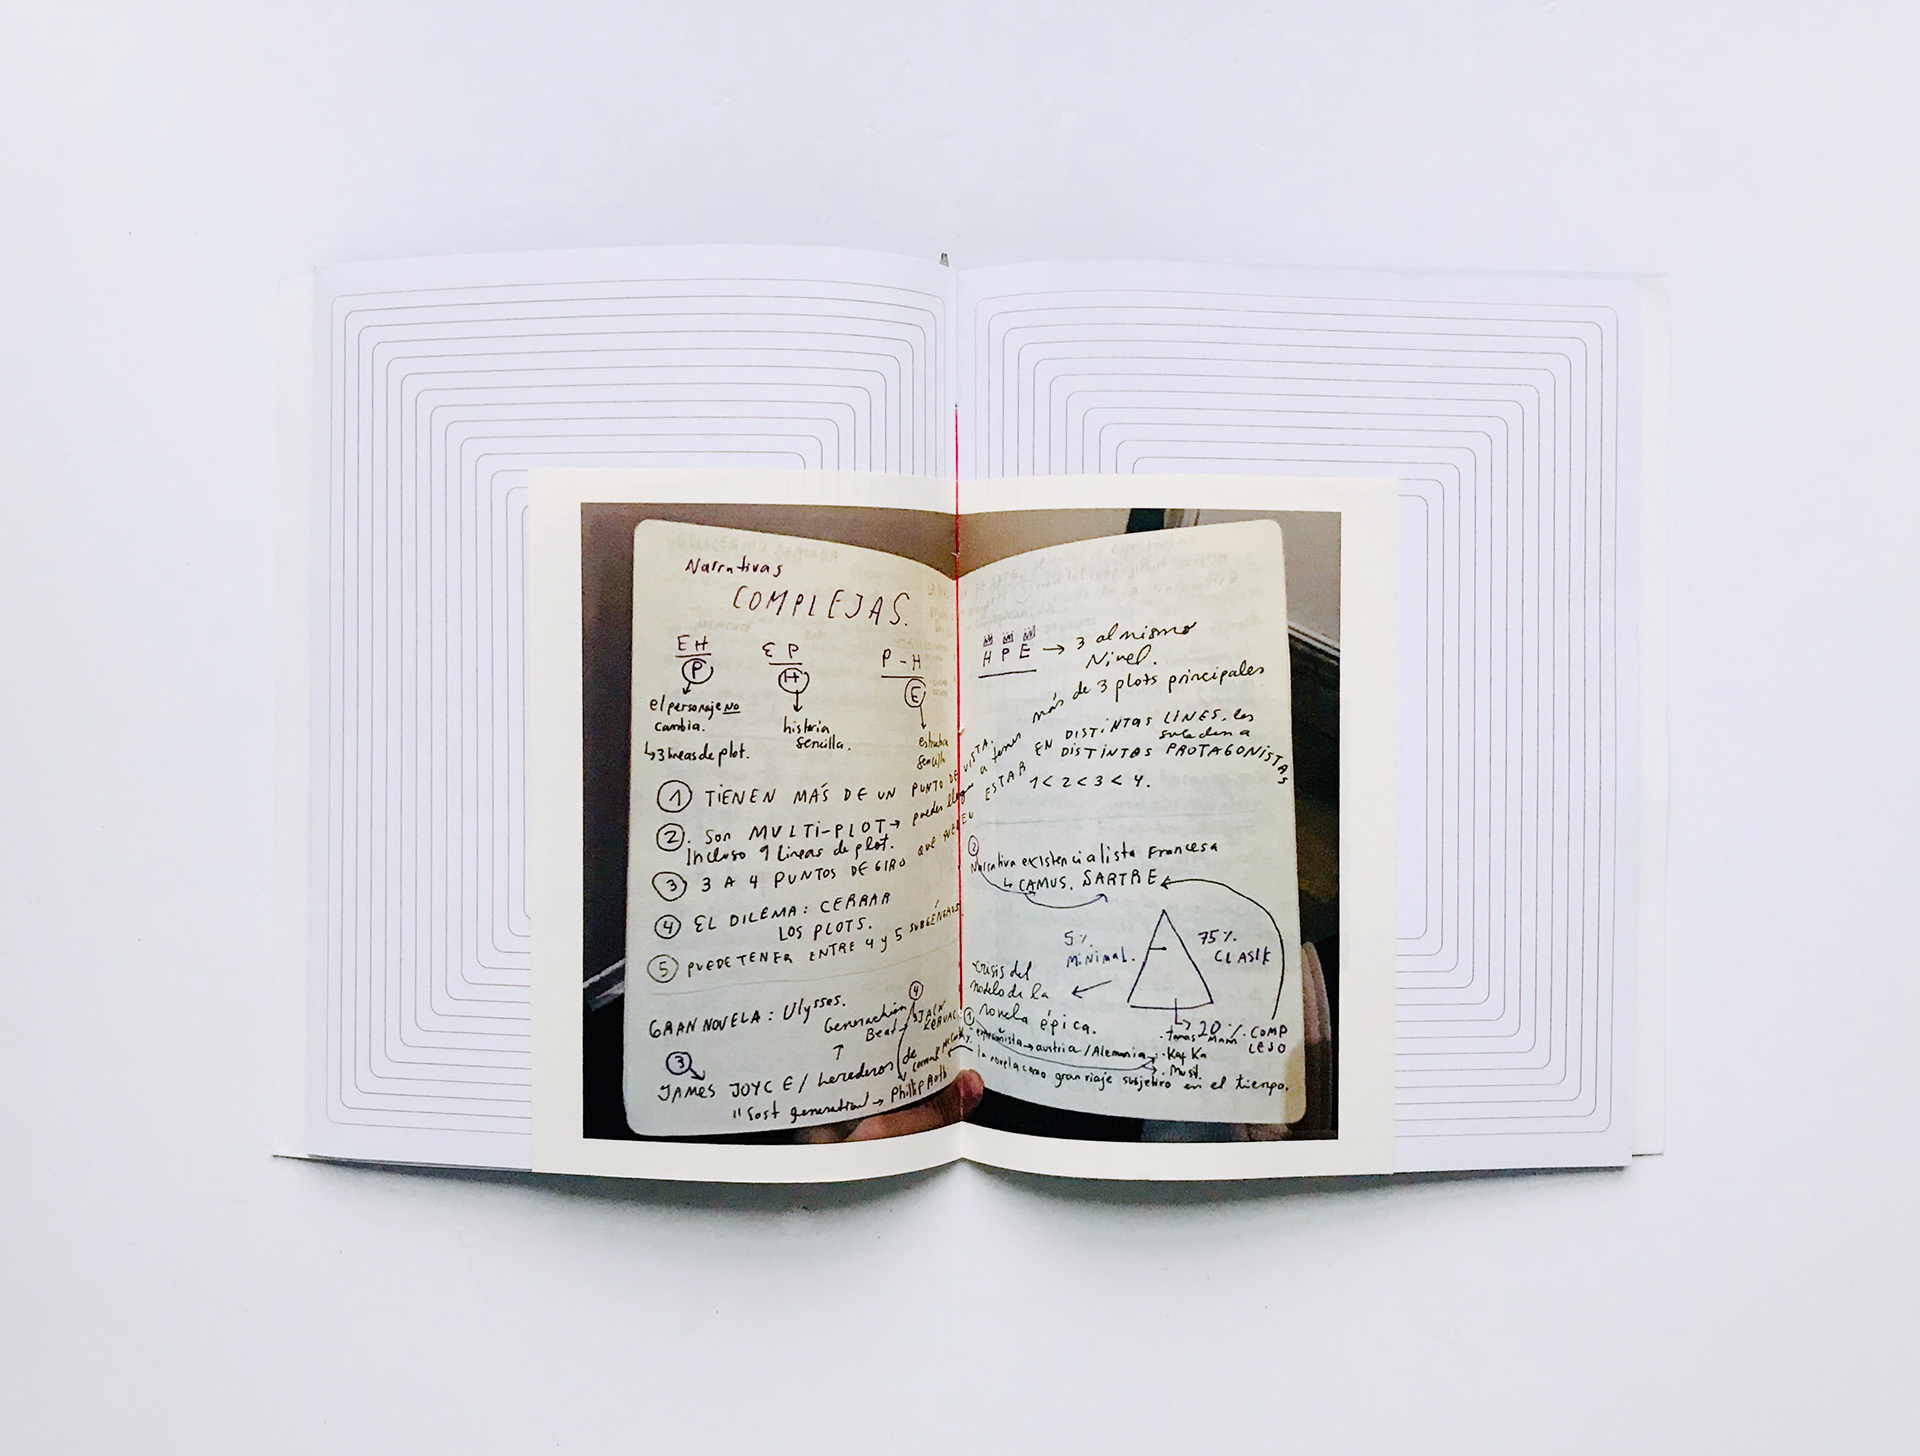 Narrativas
COMPLEJAS.
EH
P
el personaje NO
cambia.
↳3 lineas de plot.
E P
H
historia
sencilla.
P - H
E
estructura
sencilla
① TIENEN MÁS DE UN PUNTO DE VISTA.
②. Son MULTI-PLOT → pueden llegar a tener más de 3 plots principales
Incluso 9 lineas de plot.
③ 3 A 4 PUNTOS DE GIRO que PUEDEN ESTAR EN DISTINTAS LINES, les
suceden a
DISTINTAS PROTAGONISTAS
④ EL DILEMA: CERRAR
LOS PLOTS.
⑤ PUEDE TENER ENTRE 4 y 5 SUBGÉNEROS.
GRAN NOVELA: Ulysses.
Generación
Beat → JACK
KEROUAC
④
③
JAMES JOYCE / herederos de
"Lost generation" → Phillip Roth
Cormac McCarthy.
H P E → 3 al mismo
Nivel.
1 < 2 < 3 < 4.
②
Narrativa existencialista Francesa
↳ CAMUS. SARTRE
5%
MINIMAL.
75%.
CLASIK
20%. COMP
LEJO
crisis del
modelo de la
novela épica.
①
expresionista → austria / Alemania
. Tomas Mann
. Kafka
. Musil.
la novela como gran viaje subjetivo en el tiempo.